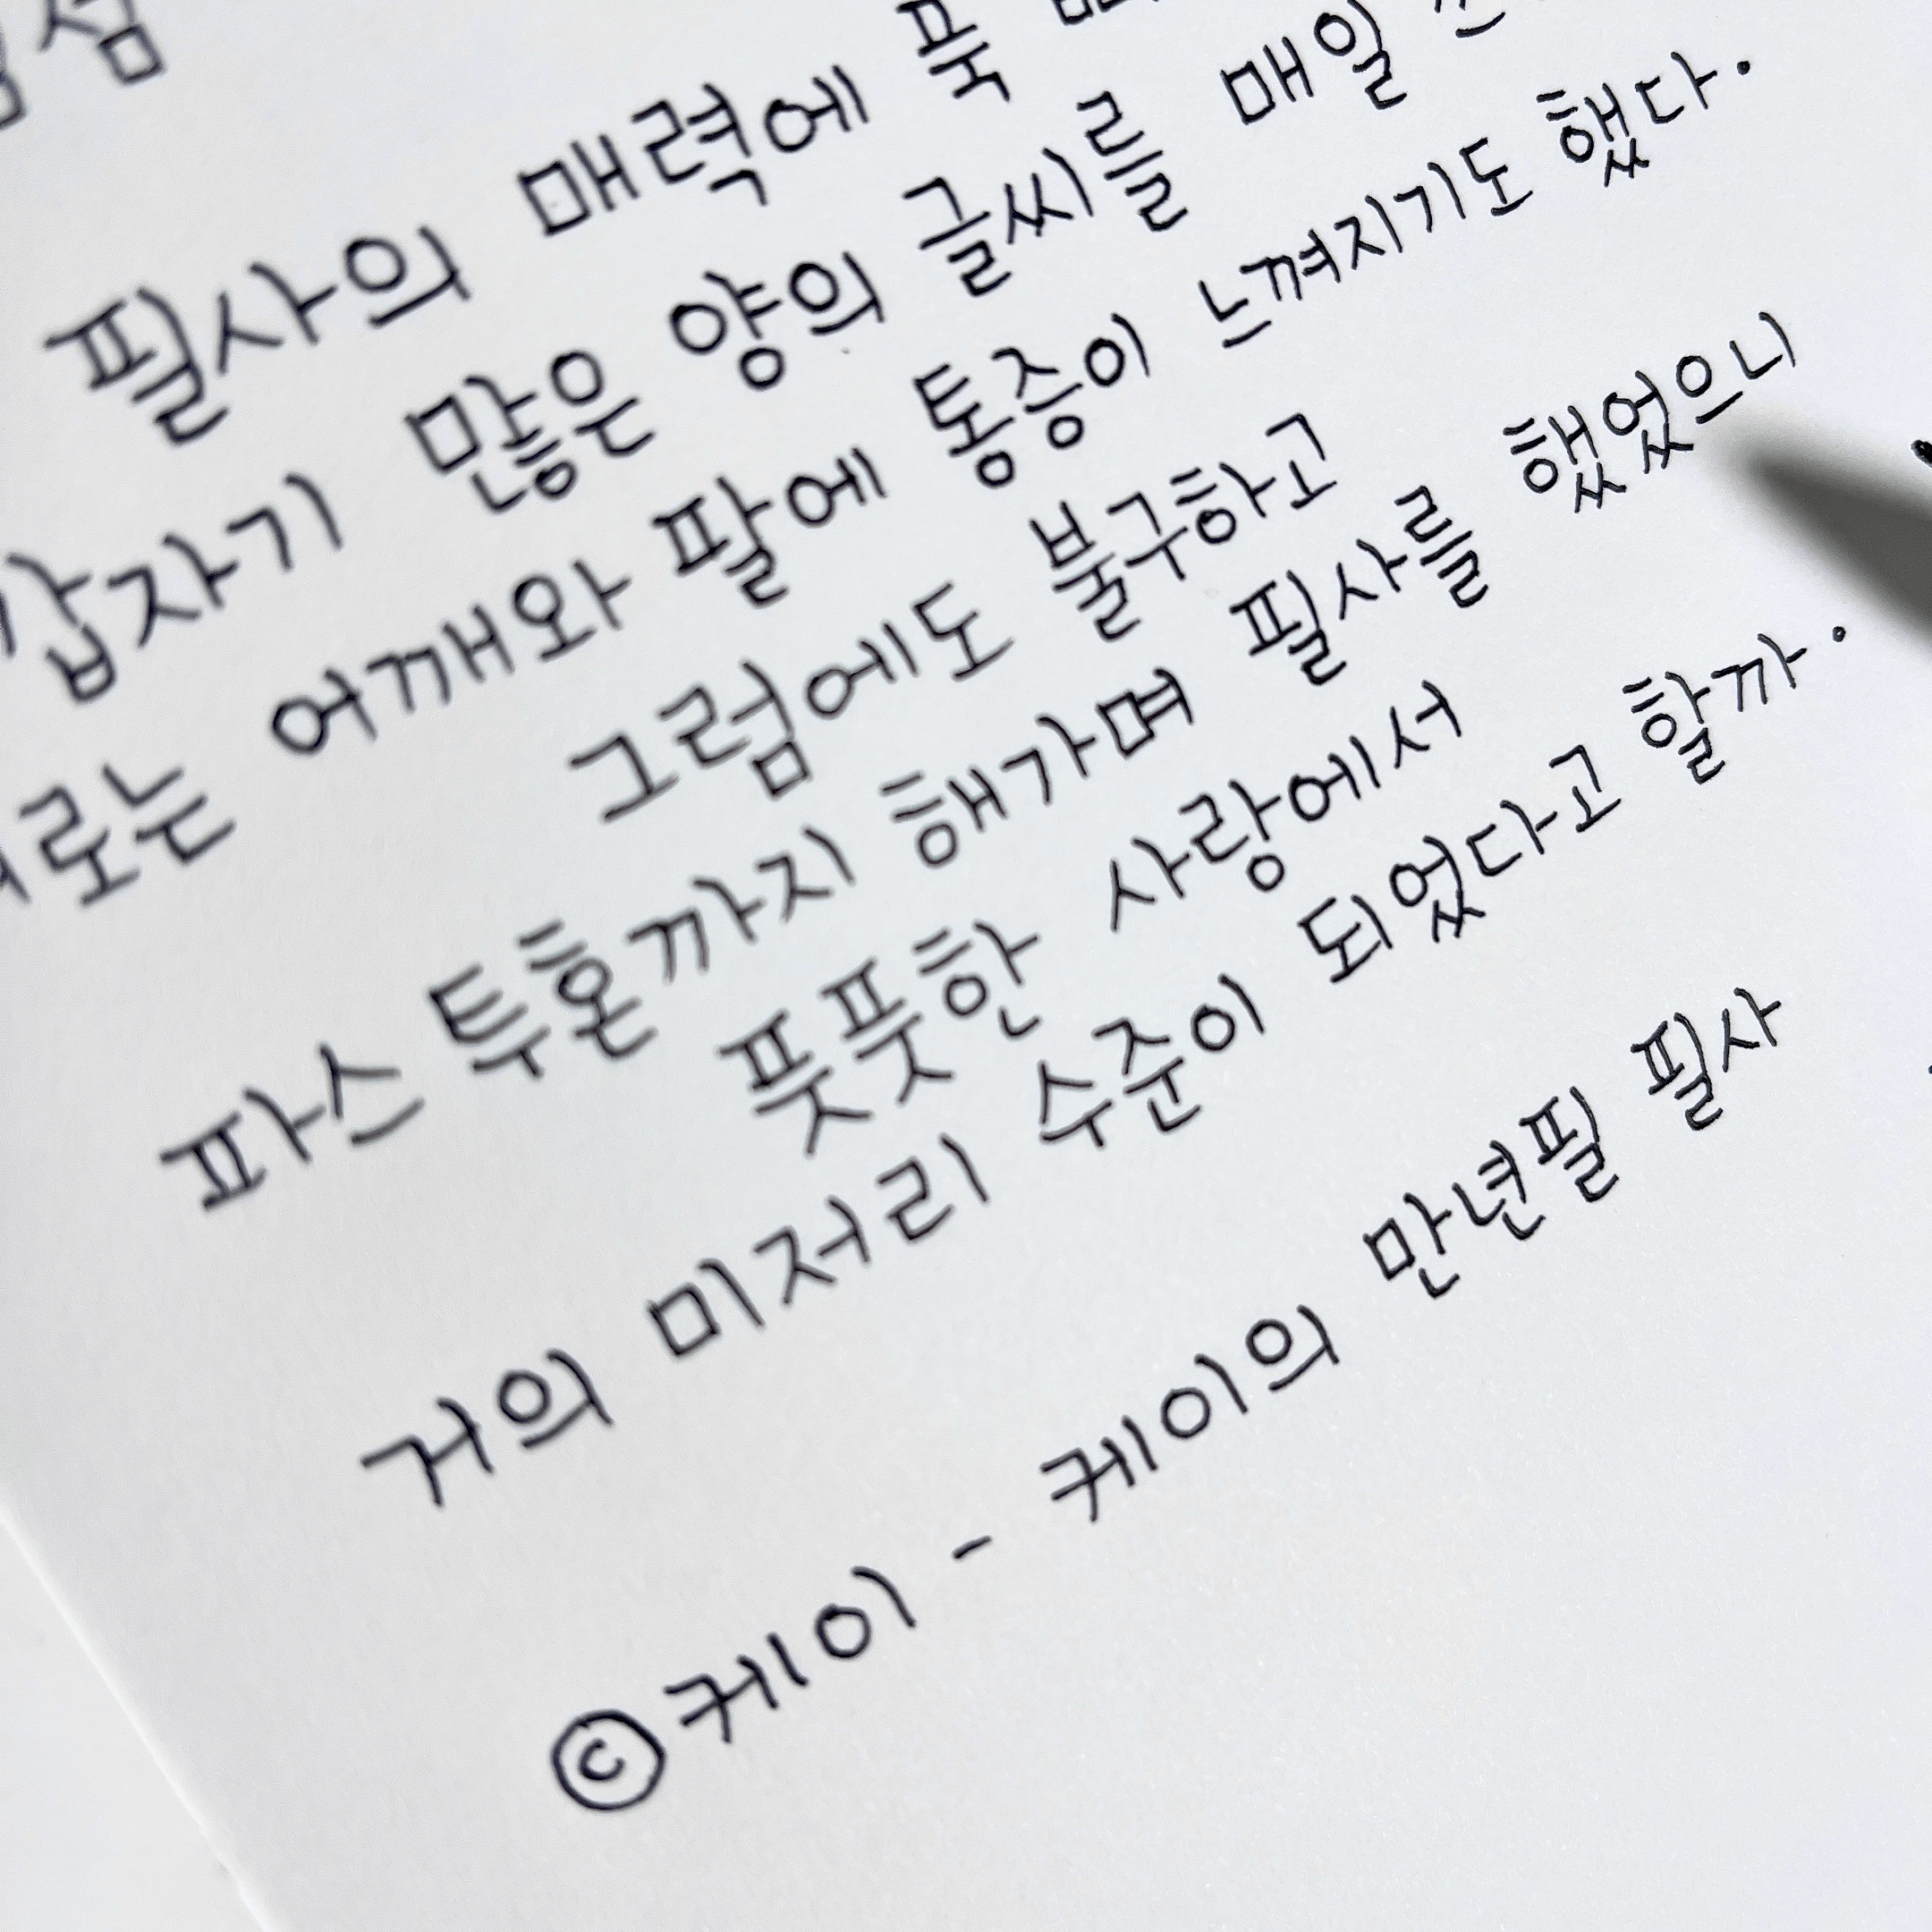 필사의 매력에 푹
갑자기 많은 양의 글씨를 매일
어깨와 팔에 통증이 느껴지기도 했다.
그럼에도 불구하고
파스 투혼까지 해가며 필사를 했었으니
풋풋한 사랑에서
거의 미저리 수준이 되었다고 할까.
©케이 - 케이의 만년필 필사